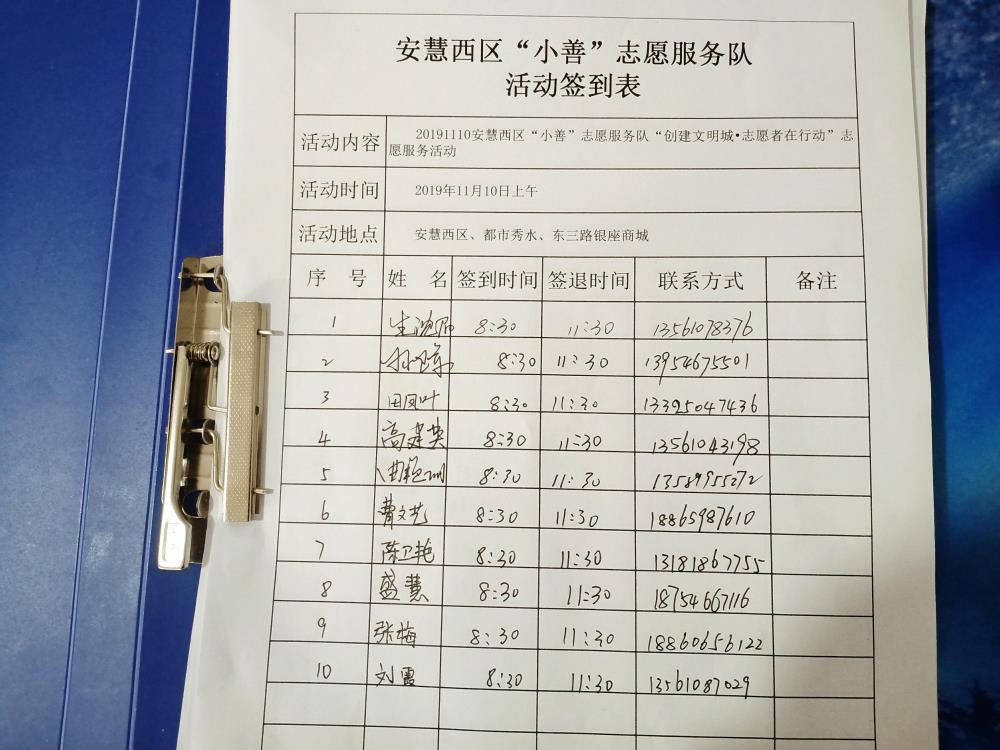 安慧西区“小善”志愿服务队
活动签到表
活动内容 20191110安慧西区“小善”志愿服务队“创建文明城•志愿者在行动”志
愿服务活动
活动时间 2019年11月10日上午
活动地点 安慧西区、都市秀水、东三路银座商城
序 号 姓 名 签到时间 签退时间 联系方式 备注
1 8:30 11:30 13561078376
2 8:30 11:30 13954675501
3 田凤叶 8:30 11:30 13395047436
4 高建英 8:30 11:30 13561043198
5 8:30 11:30 13589955272
6 曹文艺 8:30 11:30 18865987610
7 陈卫艳 8:30 11:30 13181867755
8 盛慧 8:30 11:30 18754667116
9 张梅 8:30 11:30 18860656122
10 刘霞 8:30 11:30 13561087029